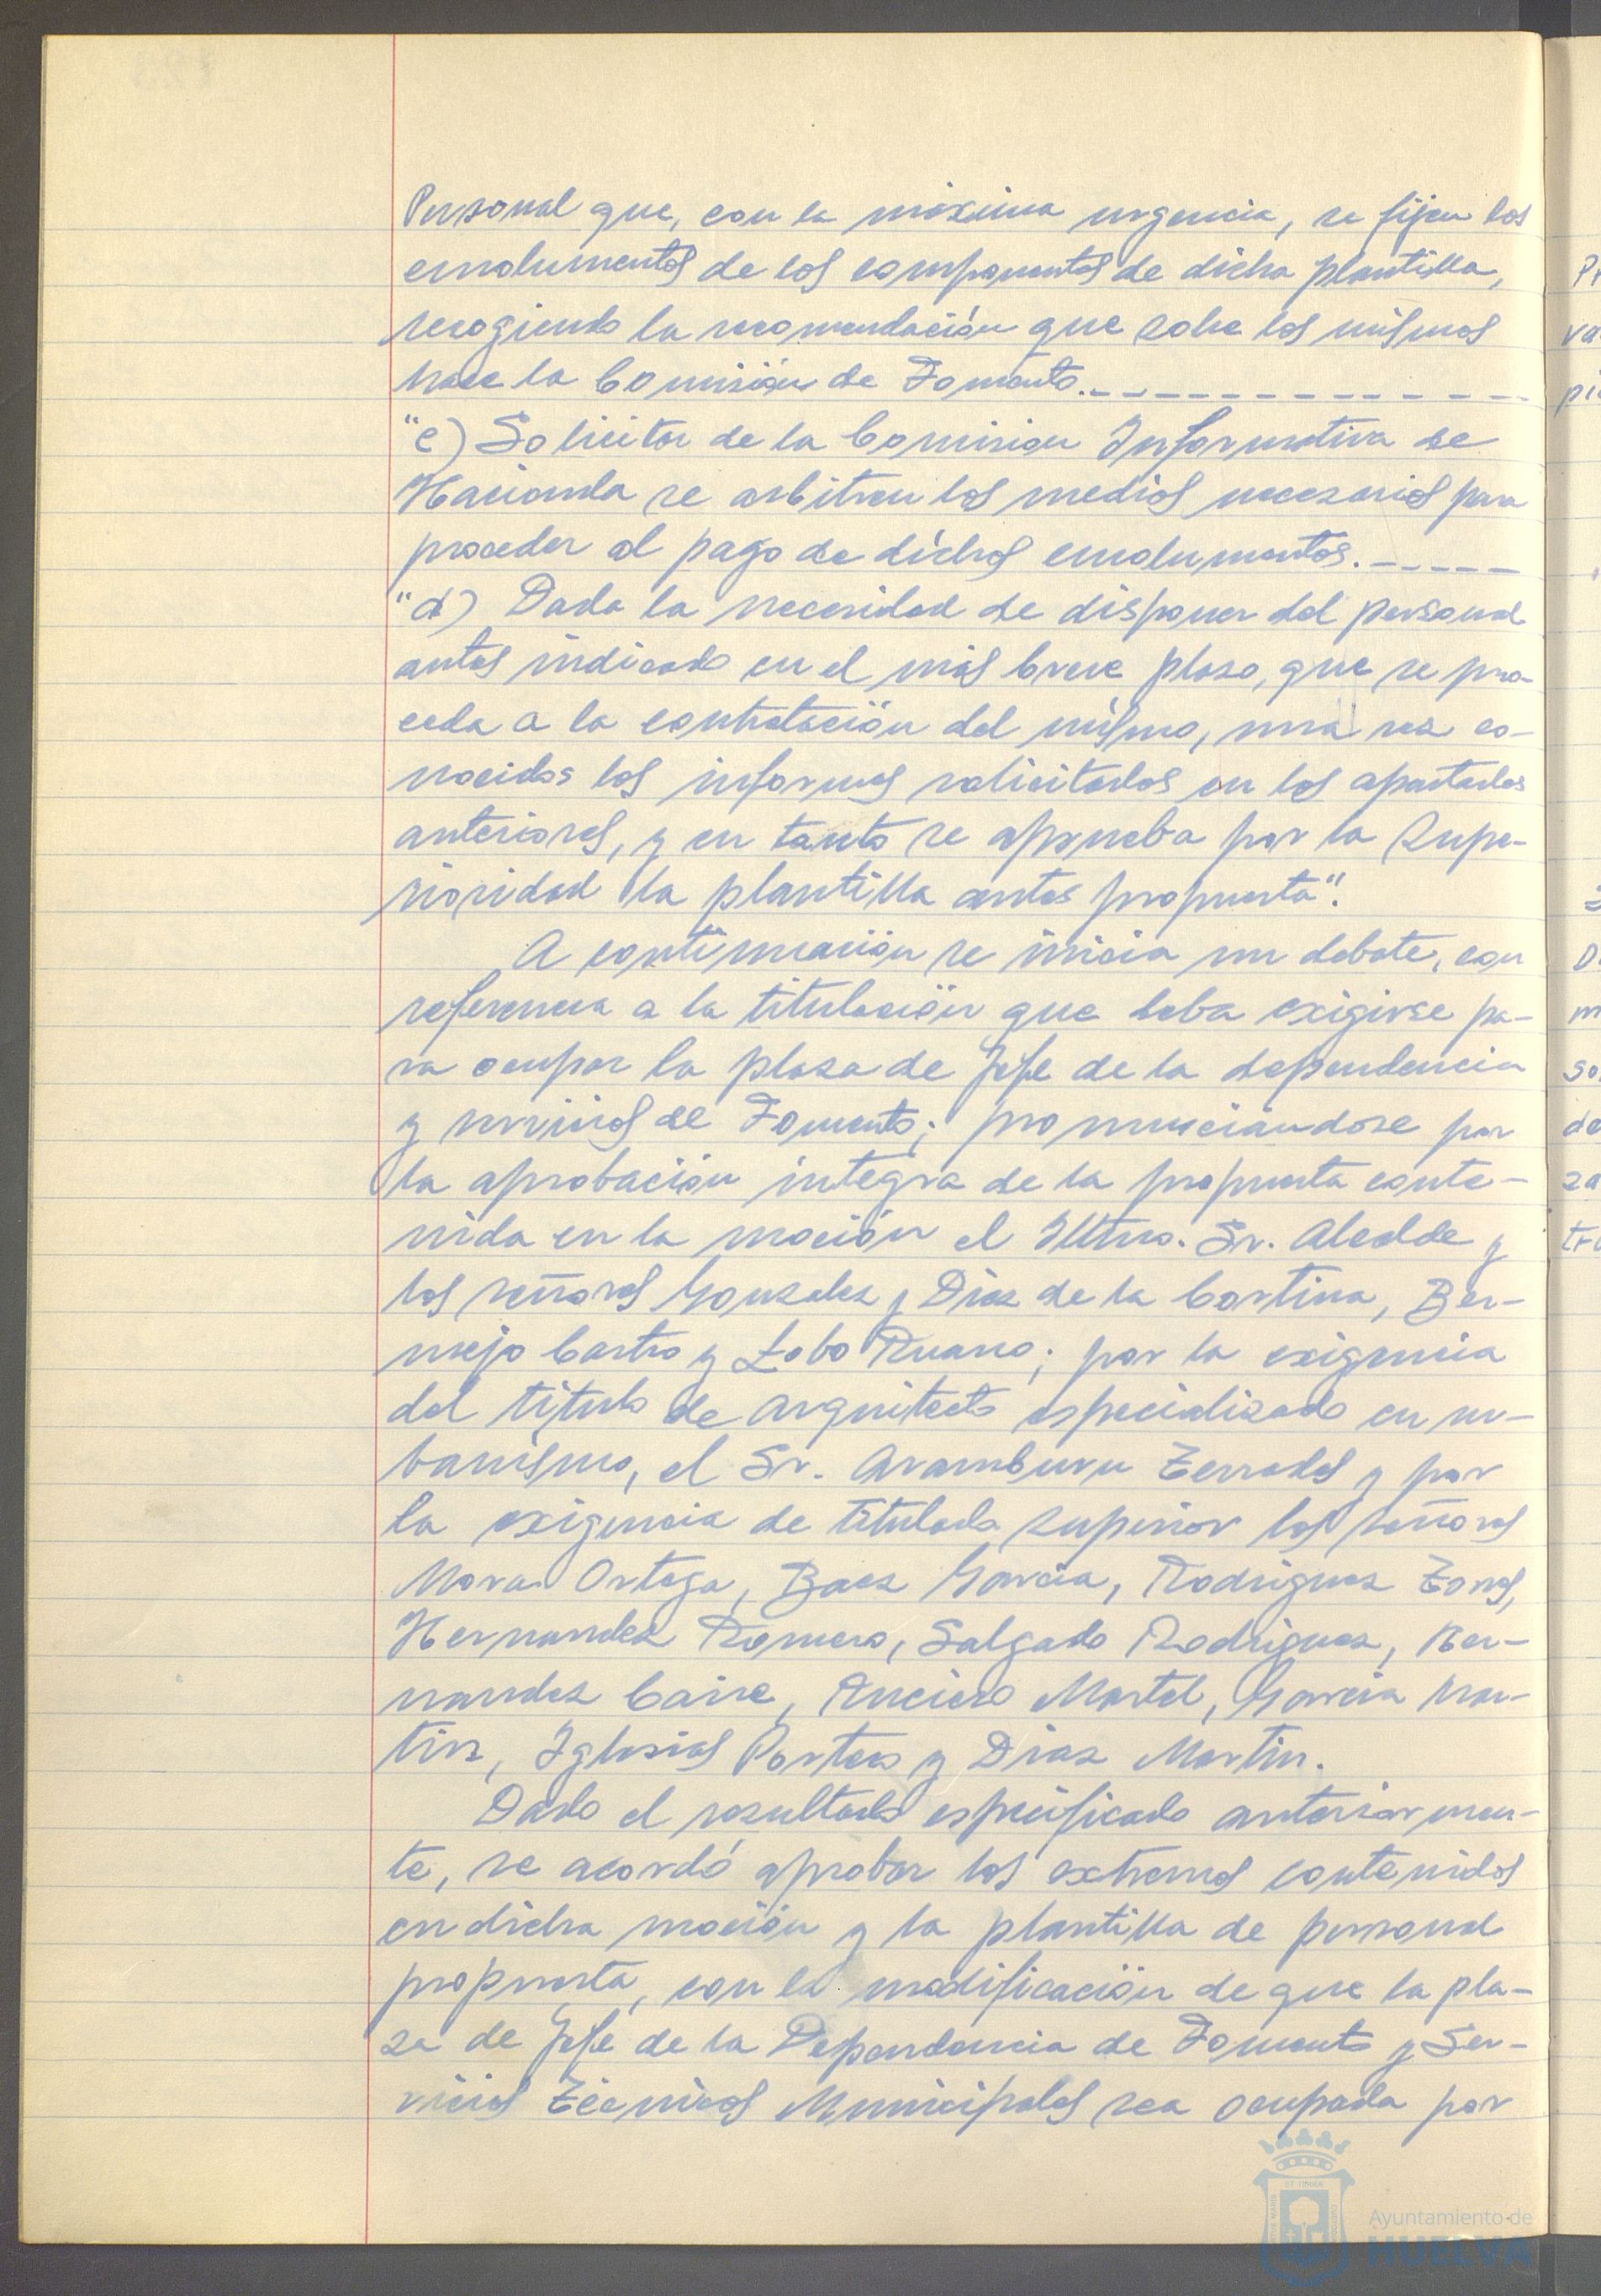 Personal que, con la máxima urgencia, se fijen los
emolumentos de los componentes de dicha plantilla,
recogiendo la recomendación que sobre los mismos
hace la Comisión de Fomento.
"c) Solicitar de la Comisión Informativa de
Hacienda se arbitren los medios necesarios para
proceder al pago de dichos emolumentos.
"d) Dada la necesidad de disponer del personal
antes indicado en el más breve plazo, que se pro-
ceda a la contratación del mismo, una vez co-
nocidos los informes solicitados en los apartados
anteriores, y en tanto se aprueba por la Supe-
rioridad la plantilla antes propuesta".
A continuación se inicia un debate, con
referencia a la titulación que deba exigirse pa-
ra ocupar la plaza de Jefe de la dependencia
y servicios de Fomento; pronunciándose por
la aprobación íntegra de la propuesta conte-
nida en la moción el Iltmo. Sr. Alcalde y
los señores Gonzalez y Diaz de la Cortina, Ber-
mejo Castro y Lobo Ruano; por la exigencia
del título de Arquitecto especializado en ur-
banismo, el Sr. Aramburu Terrades y por
la exigencia de titulado superior los señores
Mora Ortega, Baez Garcia, Rodriguez Torres,
Hernandez Romero, Salgado Rodriguez, Her-
nandez Caire, Anciero Martel, Garcia Mar-
tin, Iglesias Portero y Diaz Martin.
Dado el resultado especificado anteriormen-
te, se acordó aprobar los extremos contenidos
en dicha moción y la plantilla de personal
propuesta, con la modificación de que la pla-
za de Jefe de la Dependencia de Fomento y Ser-
vicios Técnicos Municipales sea ocupada por
Ayuntamiento de
HUELVA